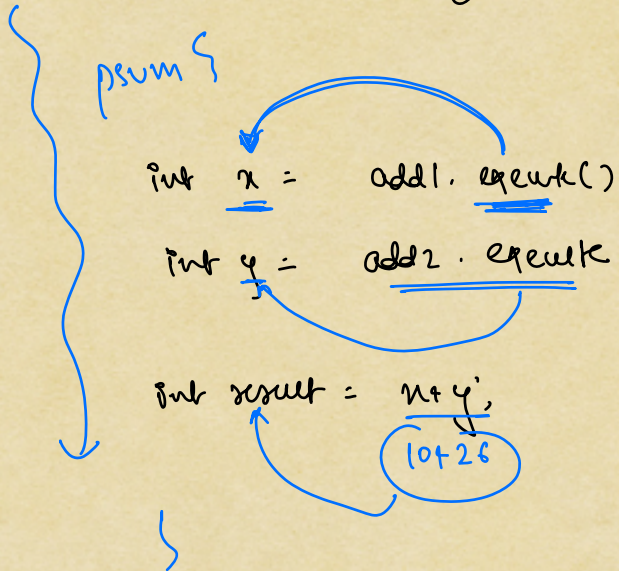 psum {
int x = add1. execute()
int y = add2. execute
int result = x+y;
10+26
}